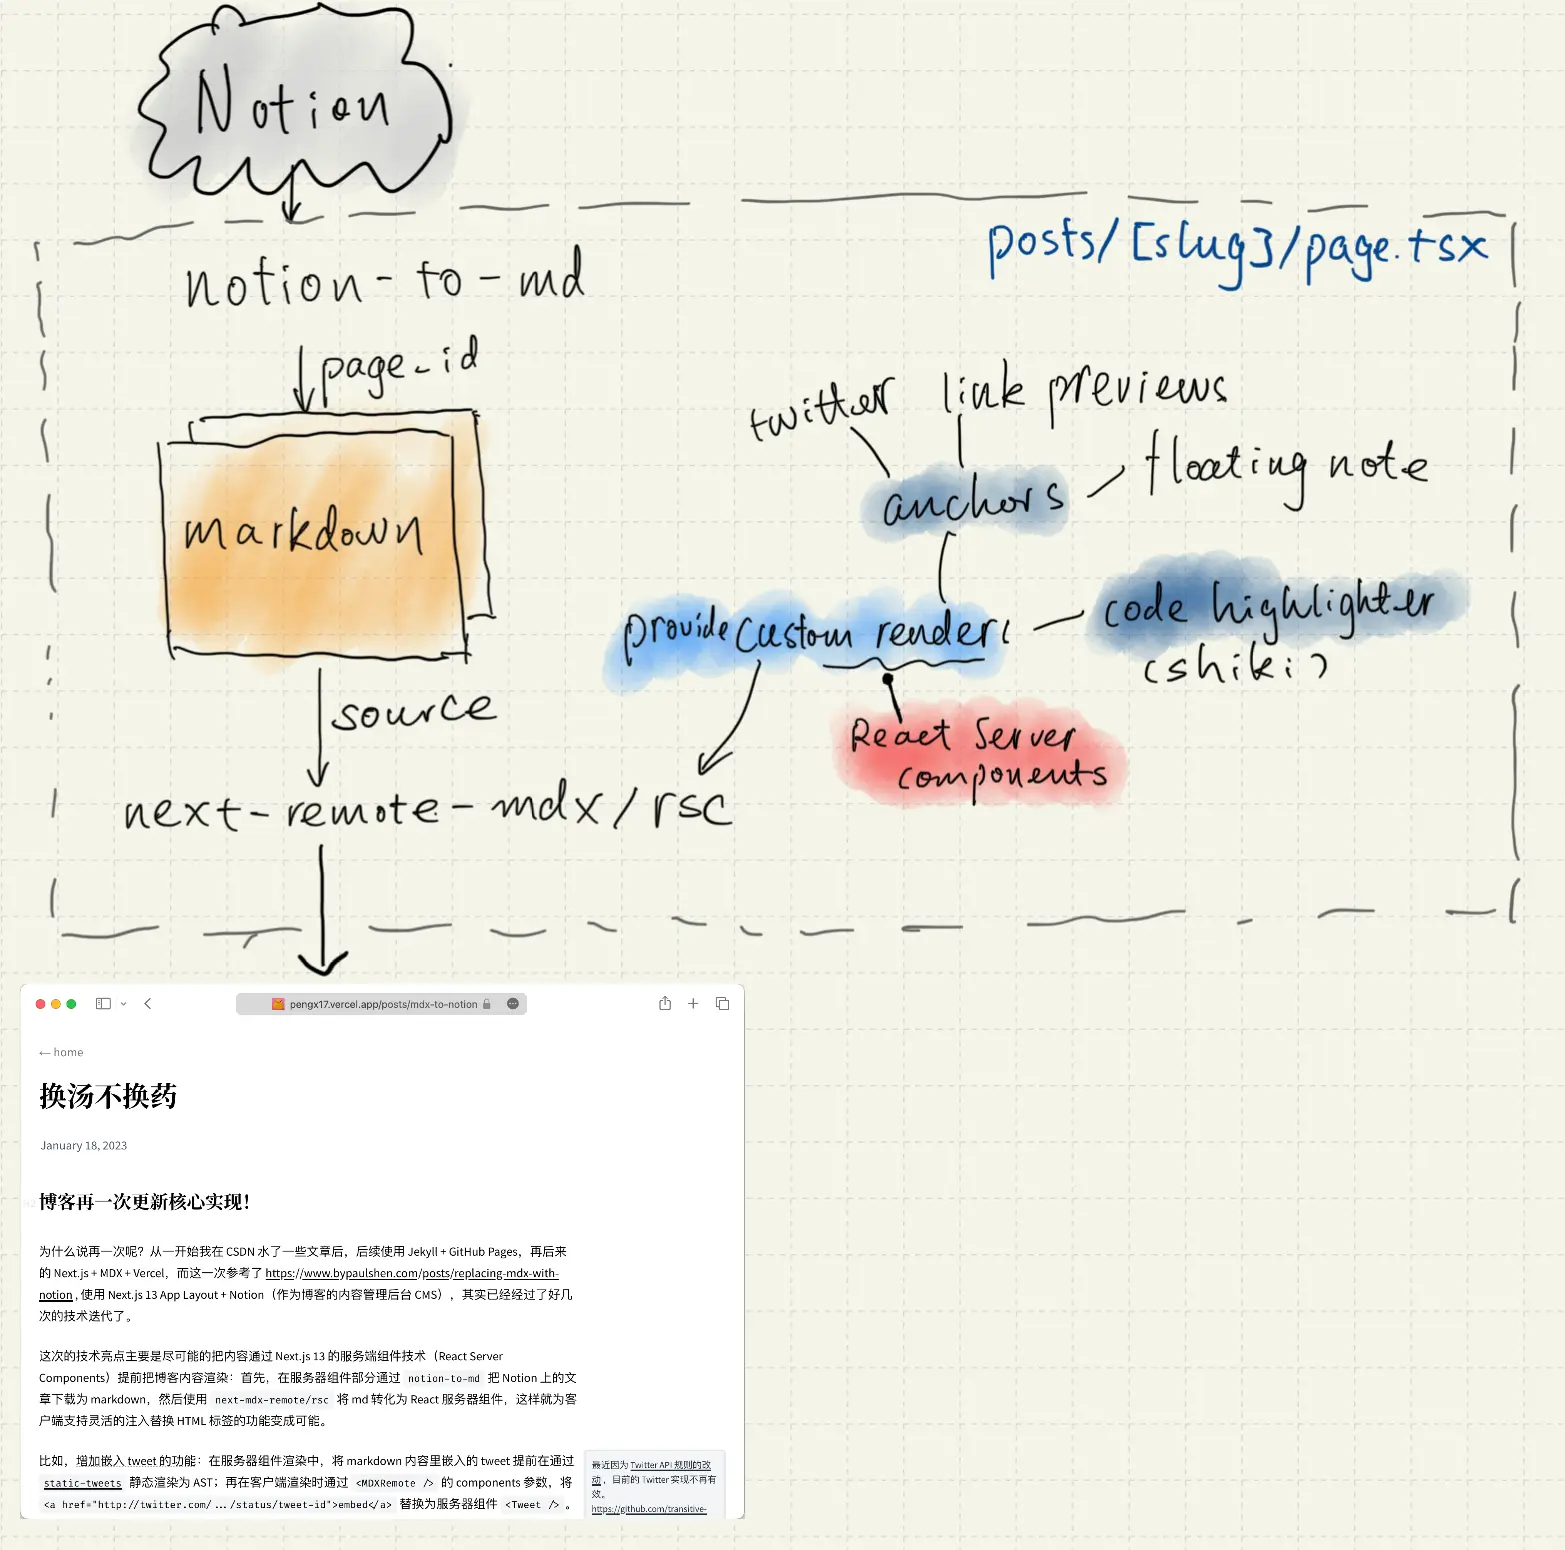 Notion
posts/[slug]/page.tsx
notion-to-md
page_id
twitter link previews
floating note
anchors
markdown
provide custom render
code highlighter
(shiki)
source
React Server
components
next-remote-mdx/rsc
pengx17.vercel.app/posts/mdx-to-notion
← home
换汤不换药
January 18, 2023
博客再一次更新核心实现！
为什么说再一次呢？从一开始我在 CSDN 水了一些文章后，后续使用 Jekyll + GitHub Pages，再后来
的 Next.js + MDX + Vercel，而这一次参考了 https://www.bypaulshen.com/posts/replacing-mdx-with-
notion , 使用 Next.js 13 App Layout + Notion（作为博客的内容管理后台 CMS），其实已经经过了好几
次的技术迭代了。
这次的技术亮点主要是尽可能的把内容通过 Next.js 13 的服务端组件技术（React Server
Components）提前把博客内容渲染：首先，在服务器组件部分通过 notion-to-md 把 Notion 上的文
章下载为 markdown，然后使用 next-mdx-remote/rsc 将 md 转化为 React 服务器组件，这样就为客
户端支持灵活的注入替换 HTML 标签的功能变成可能。
比如，增加嵌入 tweet 的功能：在服务器组件渲染中，将 markdown 内容里嵌入的 tweet 提前在通过
static-tweets 静态渲染为 AST；再在客户端渲染时通过 <MDXRemote /> 的 components 参数，将
<a href="http://twitter.com/.../status/tweet-id">embed</a> 替换为服务器组件 <Tweet /> 。
最近因为 Twitter API 规则的改
动，目前的 Twitter 实现不再有
效。
https://github.com/transitive-